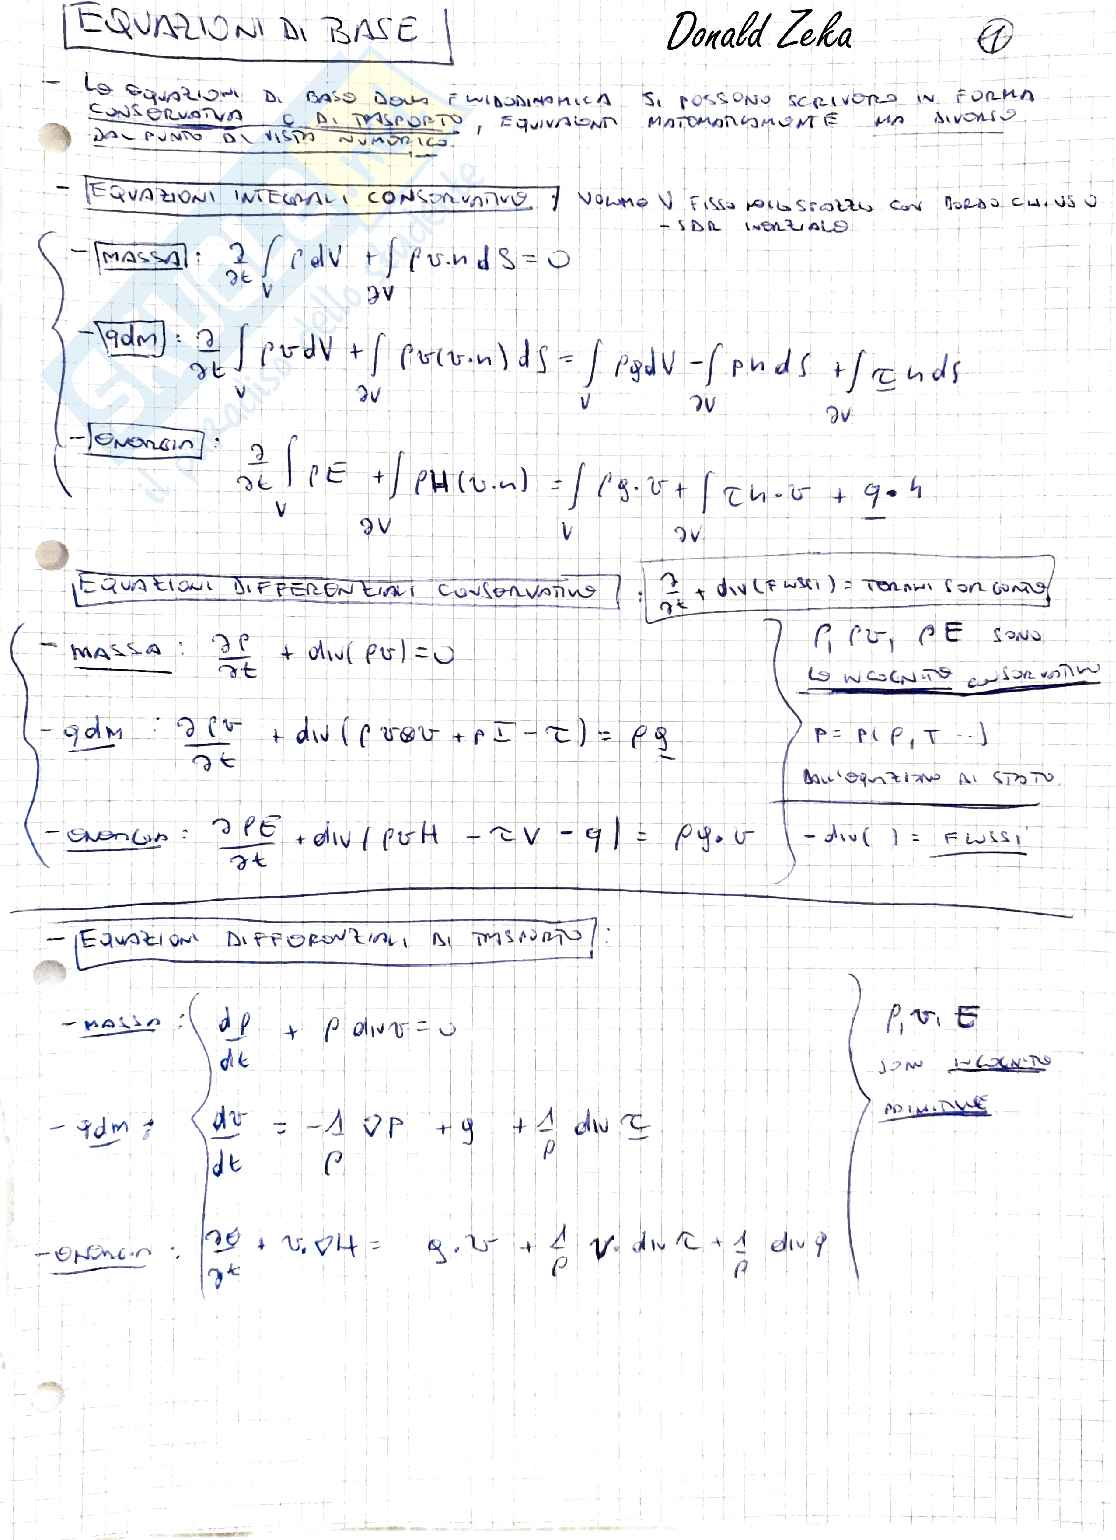 EQUAZIONI DI BASE
Donald Zeka
1
- LE EQUAZIONI DI BASE DELLA FLUIDODINAMICA SI POSSONO SCRIVERE IN FORMA
CONSERVATIVA E DI TRASPORTO, EQUIVALENTI MATEMATICAMENTE MA DIVERSE
DAL PUNTO DI VISTA NUMERICO.
- EQUAZIONI INTEGRALI CONSERVATIVE : VOLUME V FISSO NELLO SPAZIO CON BORDO CHIUSO
- SDR INERZIALE
- MASSA : ∂/∂t ∫_V ρdV + ∫_∂V ρv.n dS = 0
- qdm : ∂/∂t ∫_V ρvdV + ∫_∂V ρv(v.n) dS = ∫_V ρgdV - ∫_∂V pndS + ∫_∂V τndS
- ENERGIA : ∂/∂t ∫_V ρE + ∫_∂V ρH(v.n) = ∫_V ρg.v + ∫_∂V τn.v + q.n
EQUAZIONI DIFFERENZIALI CONSERVATIVE : ∂/∂t + div(FLUSSI) = TERMINI SORGENTE
- MASSA : ∂ρ/∂t + div(ρv) = 0
- qdm : ∂ρv/∂t + div(ρv⊗v + pI - τ) = ρg
- ENERGIA : ∂ρE/∂t + div(ρvH - τV - q) = ρg.v
ρ, ρv, ρE SONO
LE INCOGNITE CONSERVATIVE
P = P(ρ, T ...)
DALL'EQUAZIONE DI STATO
- div( ) = FLUSSI
- EQUAZIONI DIFFERENZIALI DI TRASPORTO :
- MASSA : dρ/dt + ρ div v = 0
- qdm : dv/dt = -1/ρ ∇P + g + 1/ρ div τ
- ENERGIA : ∂E/∂t + v.∇H = g.v + 1/ρ v. div τ + 1/ρ div q
ρ, v, E
SONO INCOGNITE
PRIMITIVE